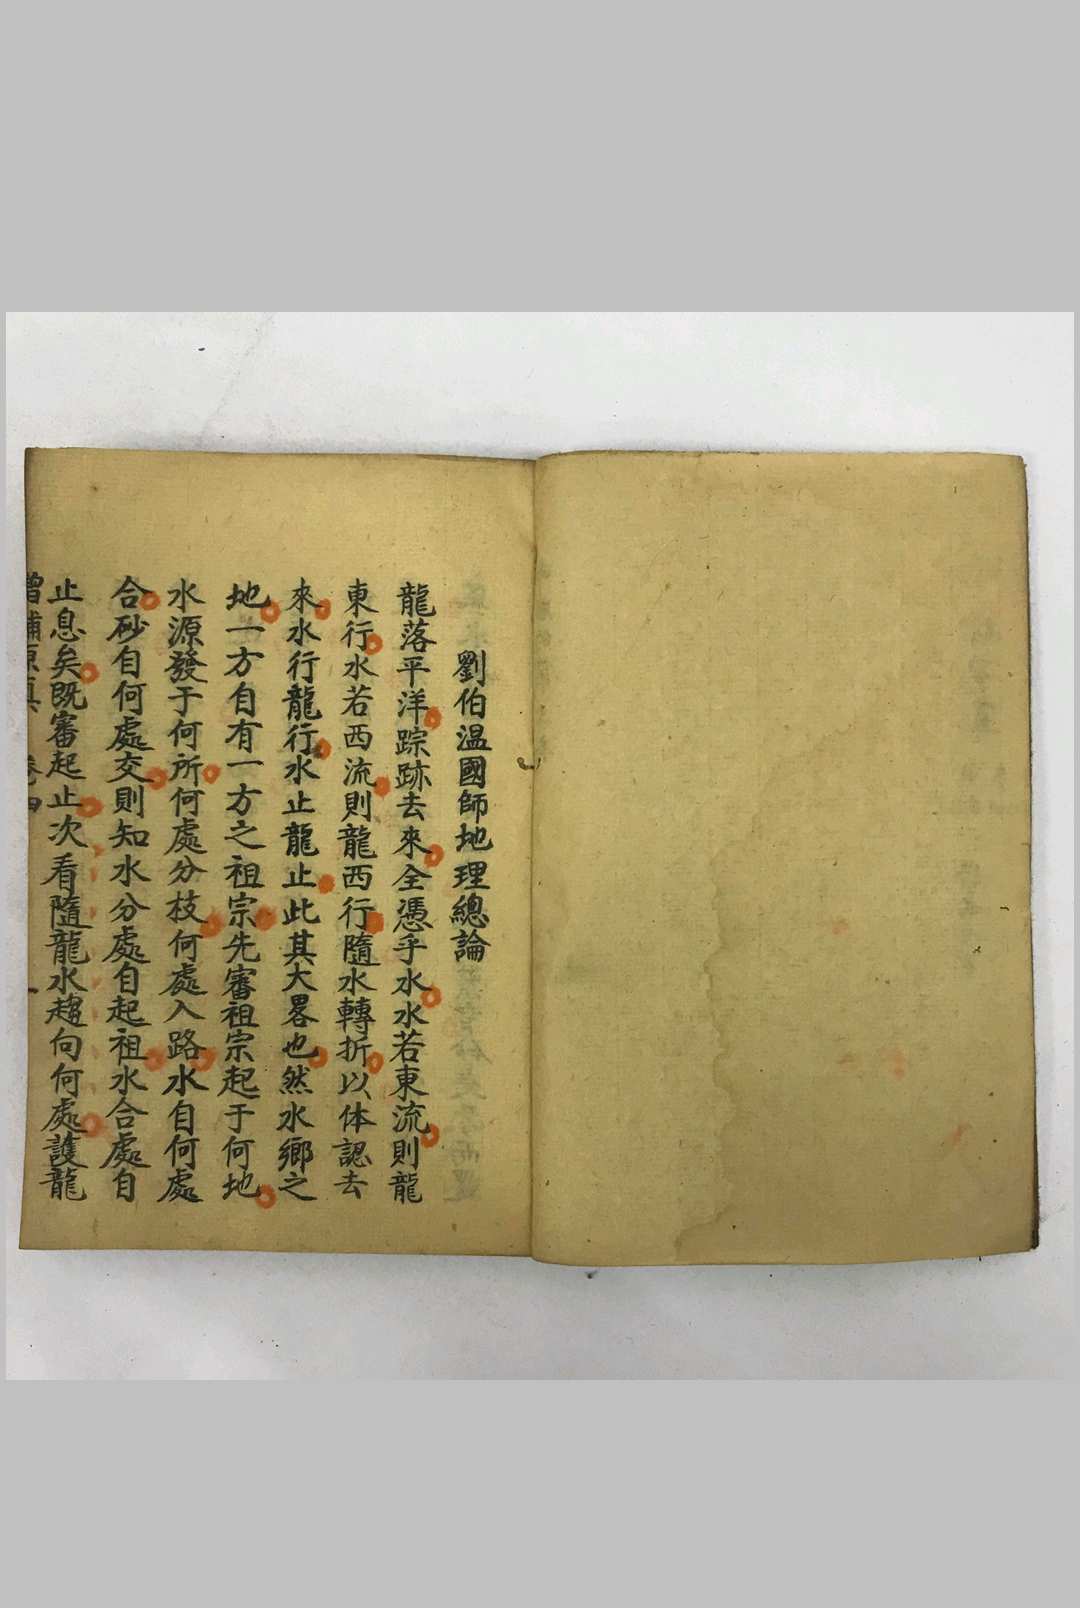 劉伯温國師地理總論
龍落平洋踪跡去來全憑乎水水若東流則龍
東行水若西流則龍西行隨水轉折以体認去
來水行龍行水止龍止此其大畧也然水鄉之
地一方自有一方之祖宗先審祖宗起于何地
水源發于何所何處分枝何處入路水自何處
合砂自何處交則知水分處自起祖水合處自
止息矣既審起止次看隨龍水趨向何處護龍
卷四